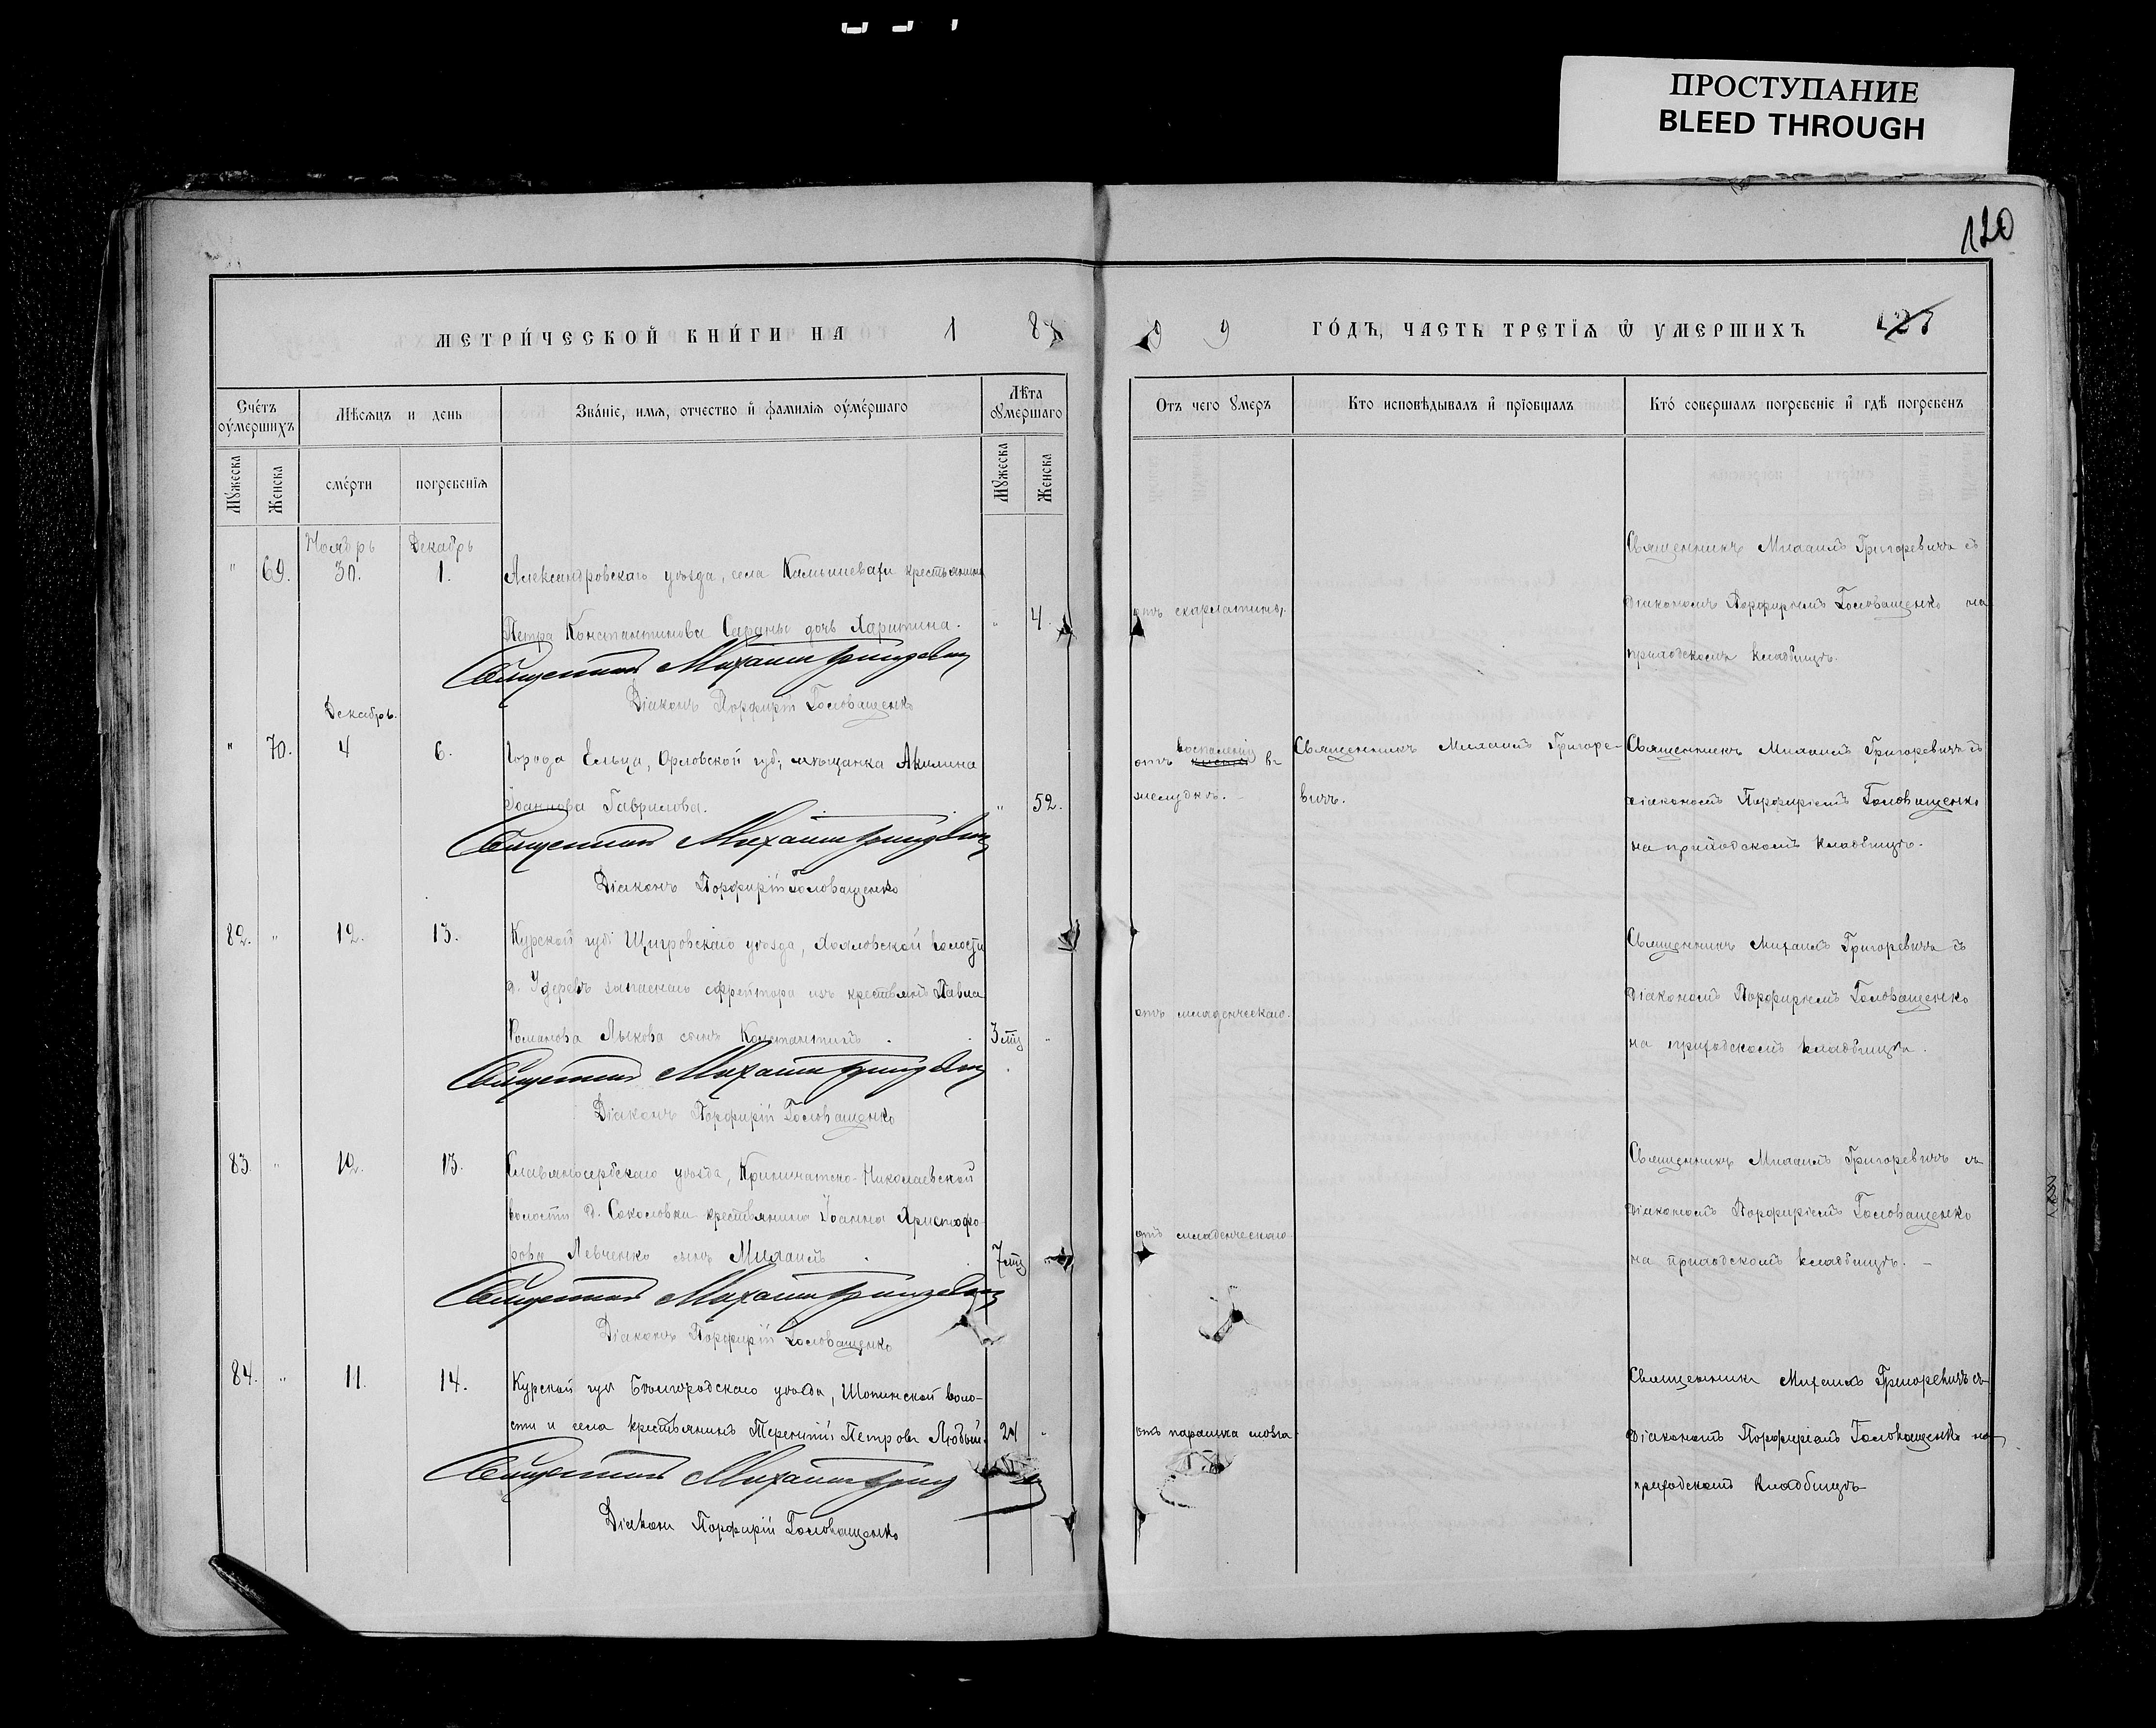 ПРОСТУПАНИЕ
BLEED THROUGH
120
МЕТРИ́ЧЕСКОЙ КНИ́ГИ НА 1 8 9 9 ГО́ДЪ, ЧАСТЬ ТРЕТІѦ Ѿ УМЕРШИХЪ
Счетъ оумершихъ
Мѣсяцъ и день
Зва́ніе, имя, отчество и фамилія оуме́ршаго
Лѣта оумершаго
Отъ чего умеръ
Кто исповѣдывалъ и пріобщалъ
Кто́ совершалъ погребеніе и гдѣ погребенъ
Мужеска
Женска
сме́рти
погребенія
Мужеска
Женска
Ноябрь Декабрь
" 69. 30. 1. Александровскаго уѣзда, села Камышевахи крестьянина
Петра Константинова Сараны дочь Харитина. " 4.
отъ скарлатины.
Священникъ Михаилъ Григоревичъ съ
діакономъ Порфиріемъ Головащенко на
приходскомъ кладбищѣ.
Священникъ Михаилъ Григоревич
Діаконъ Порфирій Головащенко
Декабрь.
" 70. 4 6. Города Ельца, Орловской губ, мѣщанка Акилина
Іоаннова Гаврилова. " 52.
воспаленія
отъ въ
желудкѣ.
Священникъ Михаилъ Григоре-
вичъ.
Священникъ Михаилъ Григоревичъ съ
діакономъ Порфиріемъ Головащенко
на приходскомъ кладбищѣ.
Священникъ Михаилъ Григоревич
Діаконъ Порфирій Головащенко
82. " 12. 13. Курской губ Щигровскаго уѣзда, волости
д. Удеревъ запаснаго ефрейтора изъ крестьянъ Павла
Романова Лыкова сынъ Константинъ. 3 мц "
отъ младенческаго.
Священникъ Михаилъ Григоревичъ съ
Діакономъ Порфиріемъ Головащенко
на приходскомъ кладбищѣ.
Священникъ Михаилъ Григоревич
Діаконъ Порфирій Головащенко
83. " 12. 13. Славяносербскаго уѣзда, Криничатско-Николаевской
волости д. Соколовки крестьянина Іоанна Христофо-
рова Левченко сынъ Михаилъ. 7 мц "
отъ младенческаго
Священникъ Михаилъ Григоревичъ съ
діакономъ Порфиріемъ Головащенко
на приходскомъ кладбищѣ. -
Священникъ Михаилъ Григоревич
Діаконъ Порфирій Головащенко
84. " 11. 14. Курской губ Бѣлгородскаго уѣзда, Шопинской воло-
сти и села крестьянинъ Терентій Петровъ 24 "
отъ паралича мозга
Священникъ Михаилъ Григоревичъ съ
Діакономъ Порфиріемъ Головащенко на
приходскомъ кладбищѣ
Священникъ Михаилъ
Діаконъ Порфирій Головащенко